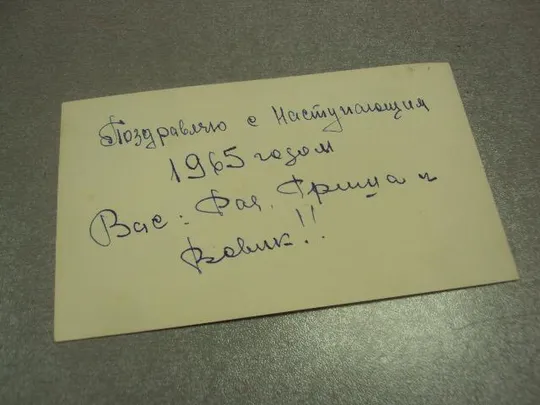 Поздравляю с Наступающим
1965 годом
Вас: Фая, Гриша и
Вовик!!